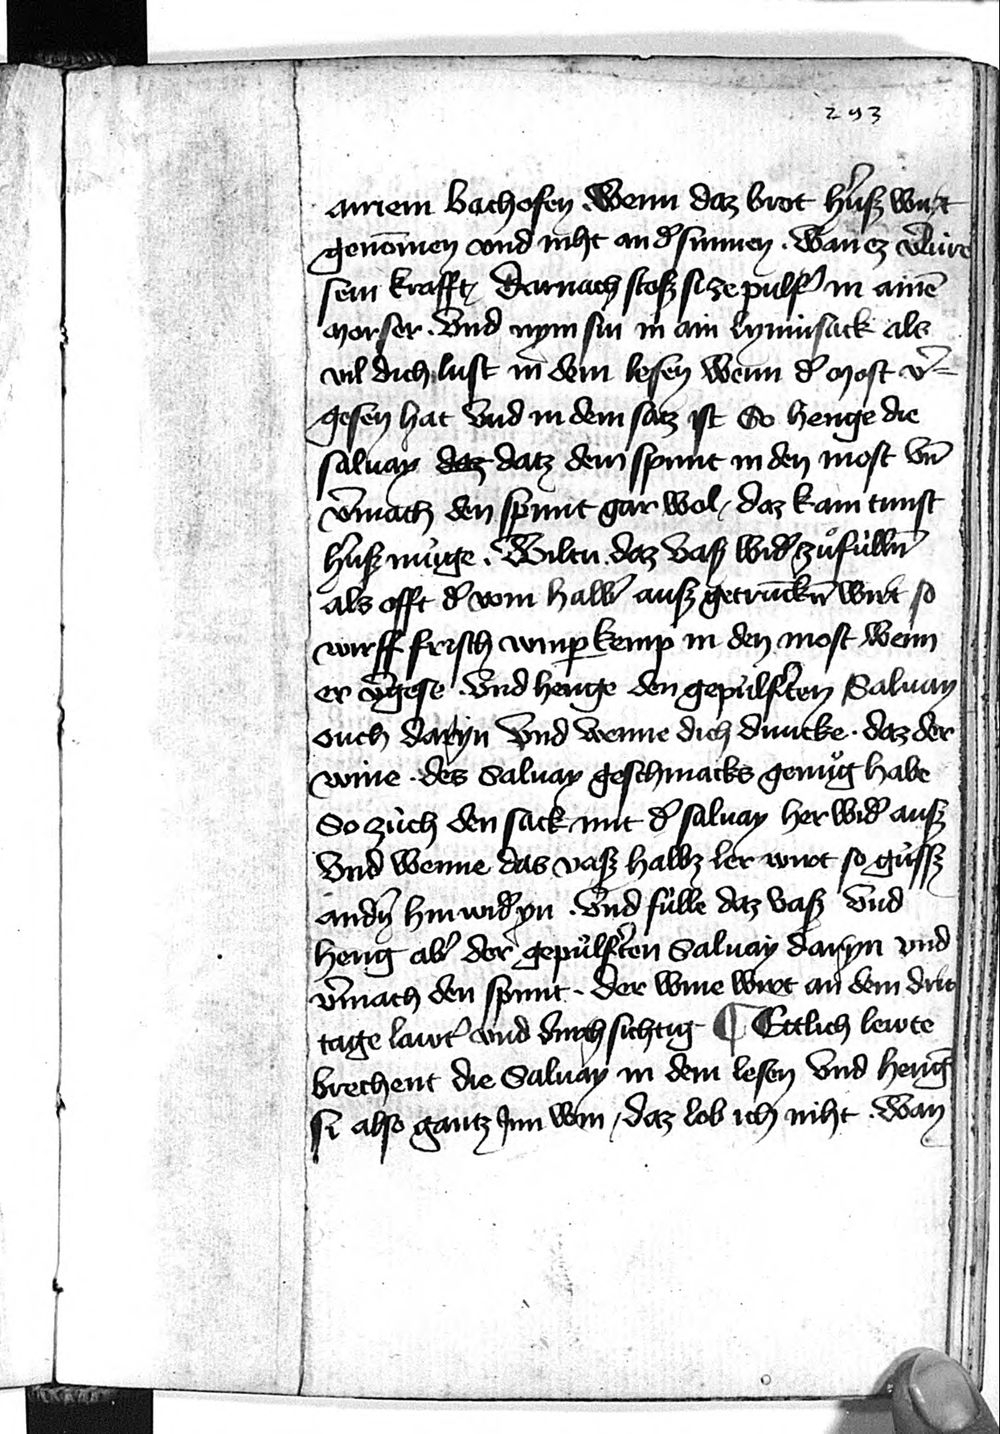 293
ainem bachofen Wenn daz brot herusz wirt
genomen vnd niht an d' sunnen . Wan ez v'lüre
sein krafft / Darnach stosz si ze pulf' in ainē
morser . Vnd nym sin in ain lyminsack als
vil dich lust in dem lesen Wenn d' most v'=
gesen hat Vnd in dem satz ist So henge die
saluay datz dem spunt in den most vn̄
v'mach den spunt gar wol / daz kain tunst
h'usz muge . Wiltu daz vasz wid' zůfüllen
als offt d' vom halb' ausz getrūckn̄ wirt so
wirff frisch winperkemp in den most Wenn
er v'gese . Vnd henge den gepülf'ten Saluay
ouch daryn Vnd wenne dich duncke . daz der
wine . des Saluay geschmacks genůg habe
So züch den sack mit d' saluay her wid' ausz
Vnd wenne das vasz halbz ler wirt so güssz
and'n hin wid' yn . Vnd fülle daz vasz Vnd
heng ab' der gepülf'ten Saluay daryn vnd
v'mach den spunt . der wine wirt an dem drit
tage lawt' vnd durchsichtig ¶ Ettlich lewte
brechent die Saluay in dem lesen Vnd henḡ
si also gantz Inn win / daz lob ich niht . Wan